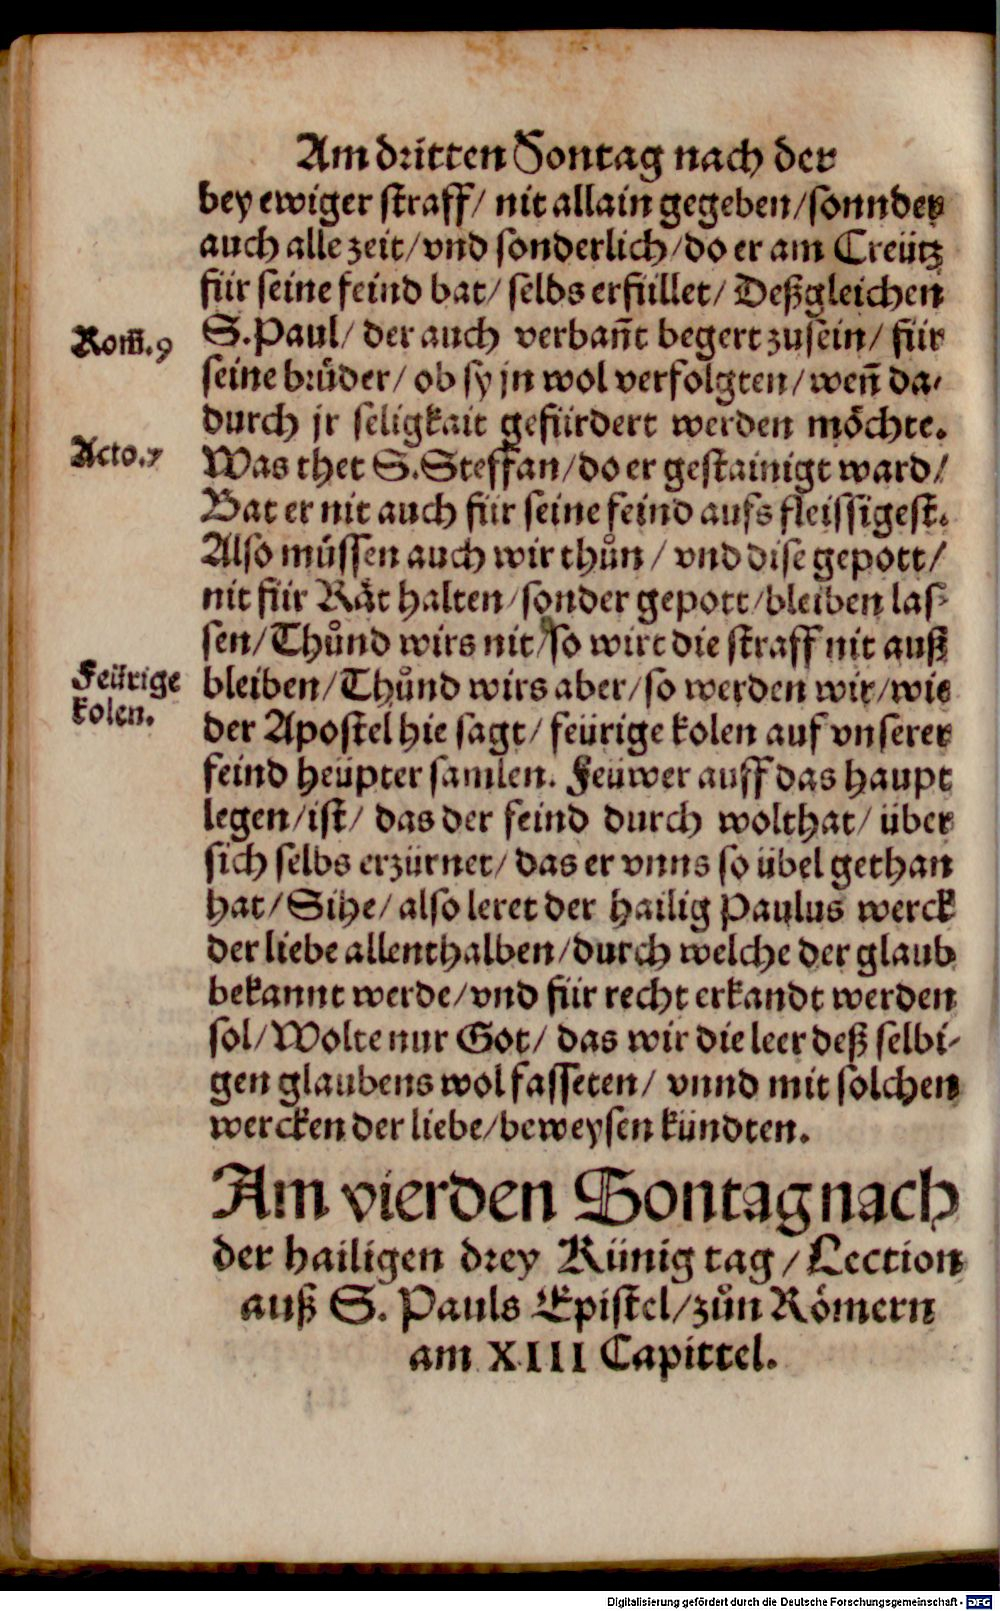 Am dritten Sontag nach der
bey ewiger straff/ nit allain gegeben/sonnder
auch alle zeit/vnd sonderlich/do er am Creütz
für seine feind bat/ selbs erfüllet/ Deßgleichen
Rom̃.9
S.Paul/ der auch verbañt begert zusein/ für
seine brüder/ ob sy jn wol verfolgten/weñ da-
durch jr seligkait gefürdert werden möchte.
Acto.7
Was thet S.Steffan/do er gestainigt ward/
Bat er nit auch für seine feind aufs fleissigest.
Also müssen auch wir thůn/ vnd dise gepott/
nit für Rät halten/sonder gepott/bleiben las-
sen/Thůnd wirs nit/so wirt die straff nit auß
Feürige
kolen.
bleiben/Thůnd wirs aber/so werden wir/wie
der Apostel hie sagt/ feürige kolen auf vnserer
feind heüpter samlen. Feüwer auff das haupt
legen/ist/ das der feind durch wolthat/ über
sich selbs erzürnet/ das er vnns so übel gethan
hat/Sihe/also leret der hailig Paulus werck
der liebe allenthalben/durch welche der glaub
bekannt werde/vnd für recht erkandt werden
sol/Wolte nur Got/ das wir die leer deß selbi-
gen glaubens wol fasseten/ vnnd mit solchen
wercken der liebe/beweysen kündten.
Am vierden Sontag nach
der hailigen drey Künig tag/Lection
auß S. Pauls Epistel/zůn Römern
am XIII Capittel.
Digitalisierung gefördert durch die Deutsche Forschungsgemeinschaft - DFG